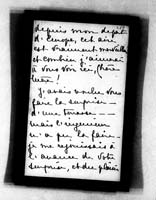 depuis mon depart
d'Europe, cet air
est vraiment merveilleux
et combien j'aimerais
à vous voir ici, chère
Mère!
j'avais voulu vous
faire la surprise
d'une
mais l'ingénieur
n'a pu la faire
je me réjouissais à
l'avance de votre
surprise, et du plaisir